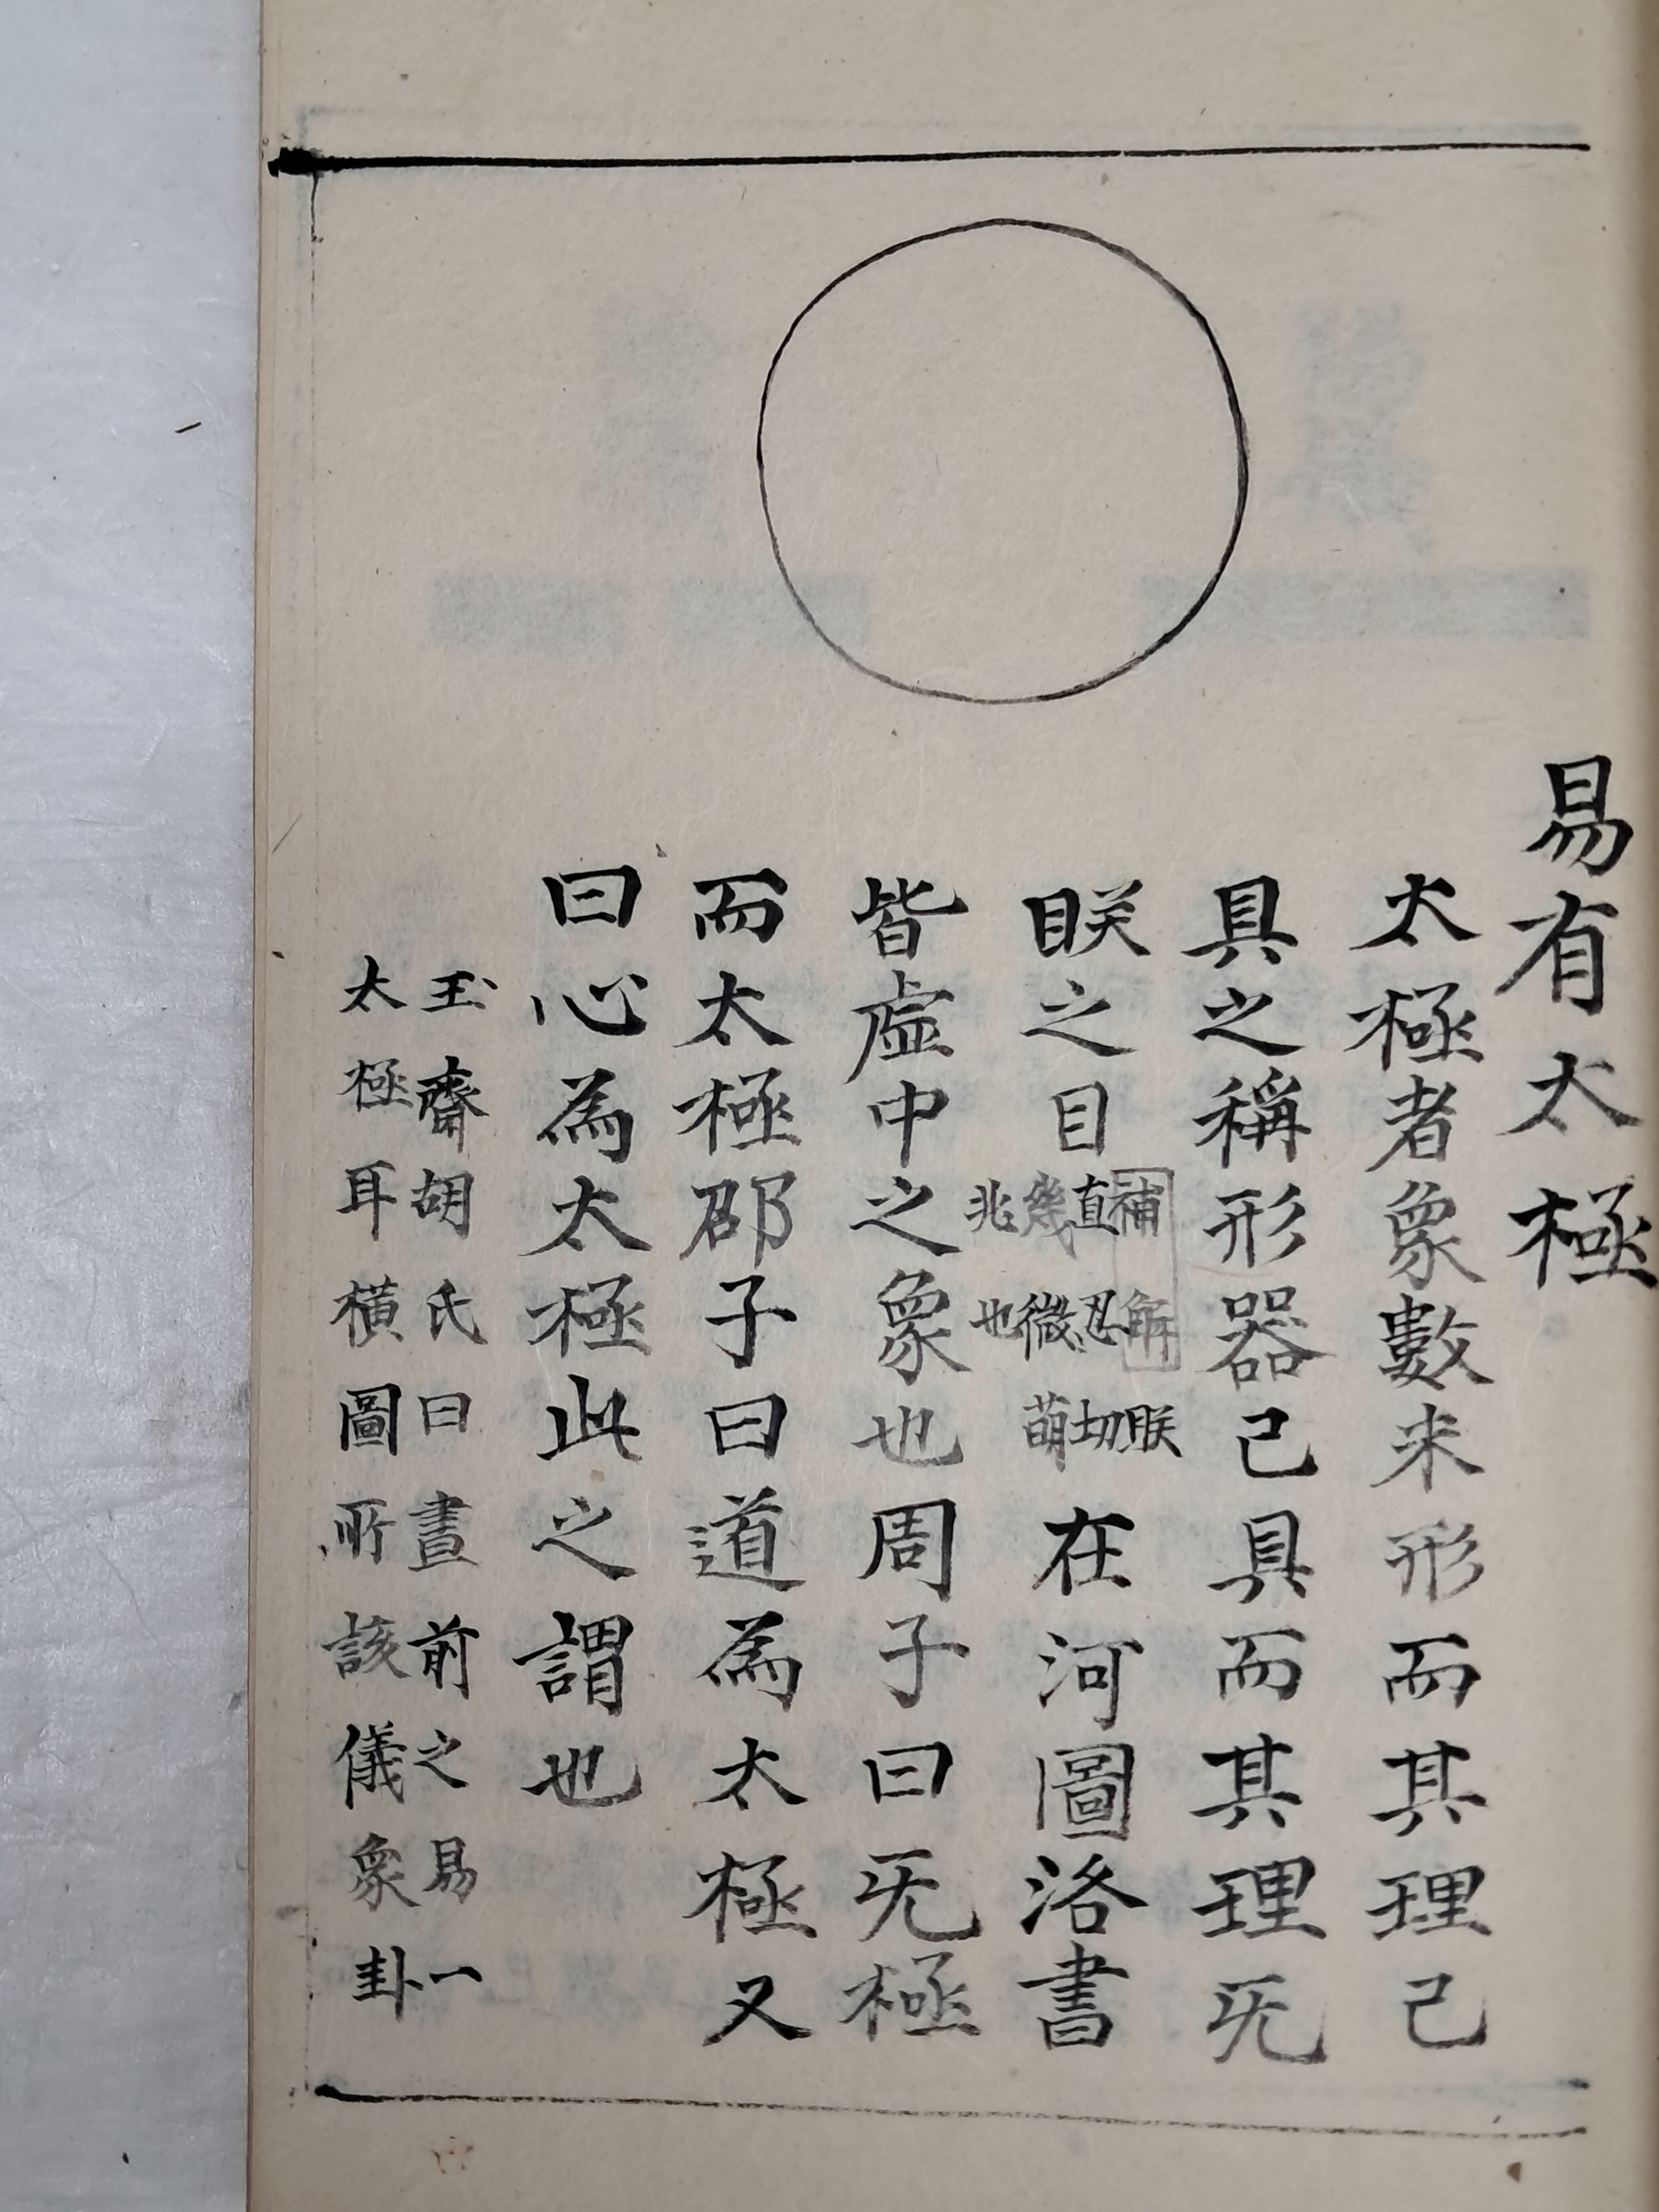 易有太極
太極者象數未形而其理己
具之稱形器己具而其理无
眹之目
補解眹
直忍切
幾微萌
兆也
在河圖洛書
皆虛中之象也周子曰无極
而太極邵子曰道為太極又
曰心為太極此之謂也
玉齋胡氏曰畫前之易一
太極耳橫圖所該儀象卦